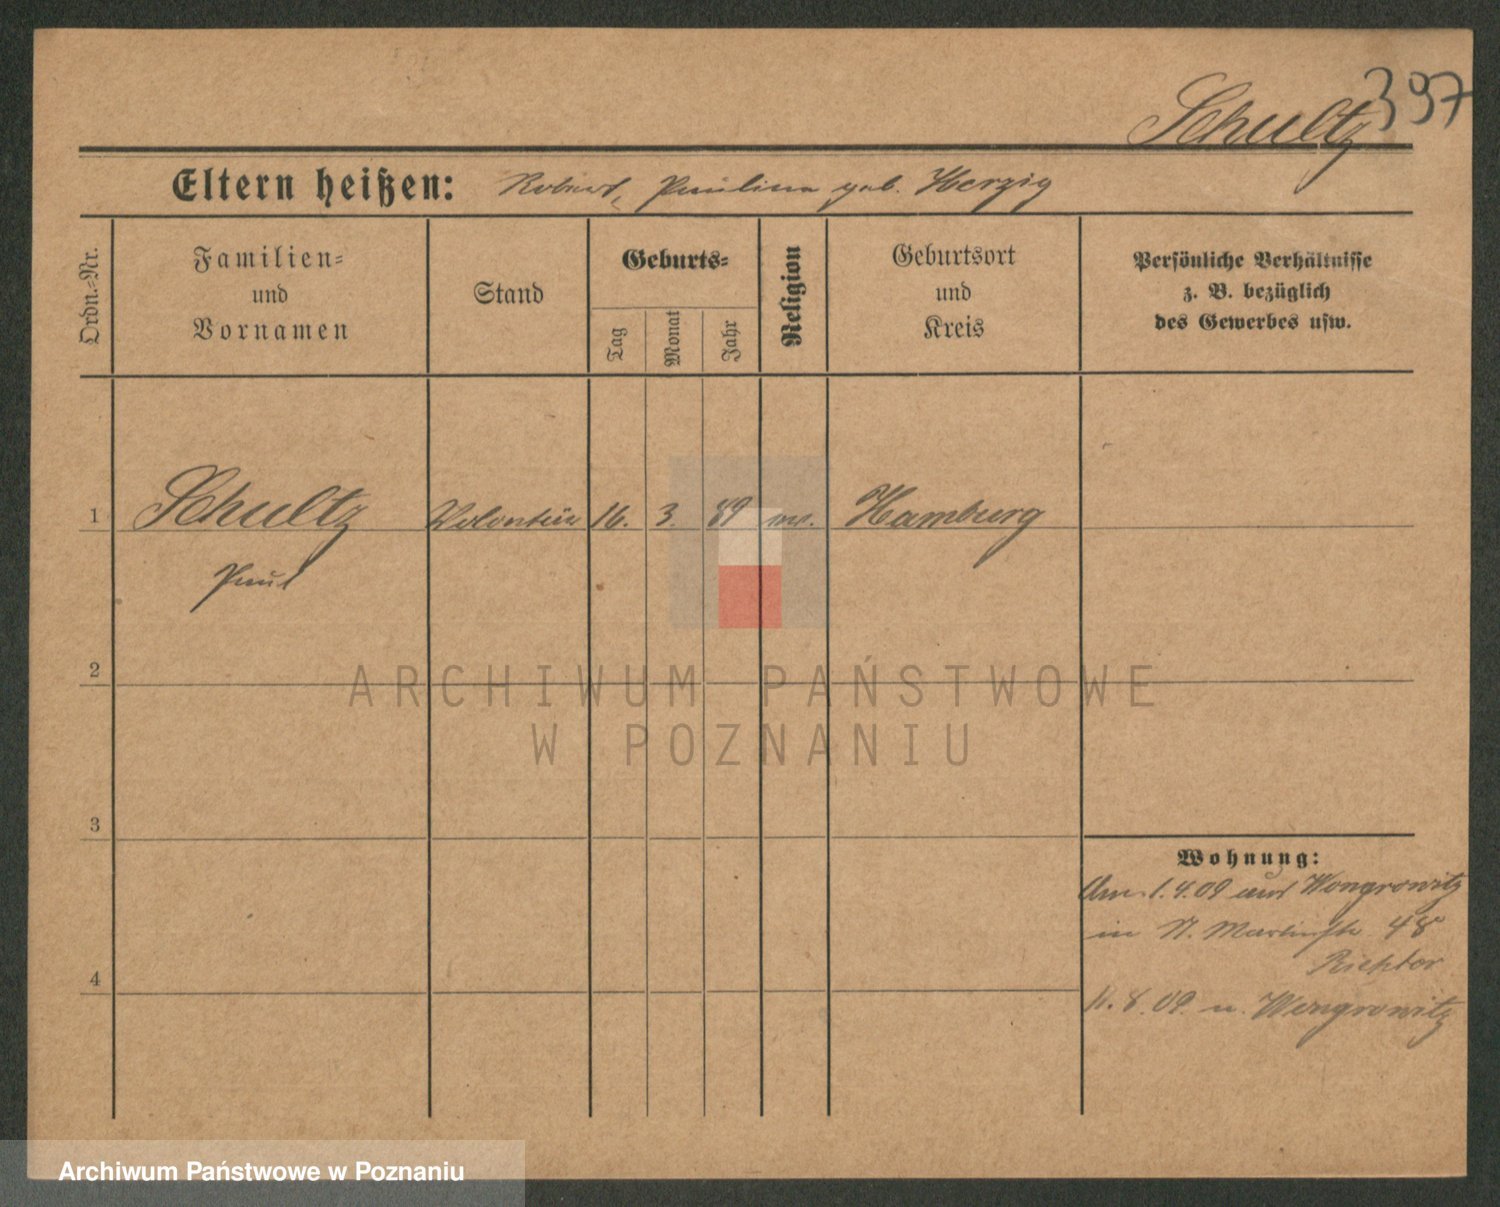 Schultz 397
Eltern heißen: Robert, Paulina geb. Herzig
Ordn.-Nr.
Familien-
und
Vornamen
Stand
Geburts-
Tag
Monat
Jahr
Religion
Geburtsort
und
Kreis
Persönliche Verhältnisse
z. B. bezüglich
des Gewerbes usw.
1 Schultz Volontär 16. 3. 89 ev. Hamburg
Paul
2
ARCHIWUM PAŃSTWOWE
W POZNANIU
3
4
Wohnung:
Am 1.4.09 aus Wongrowitz
in St. Martinstr 48
Richter
11.8.09. n. Wongrowitz
Archiwum Państwowe w Poznaniu